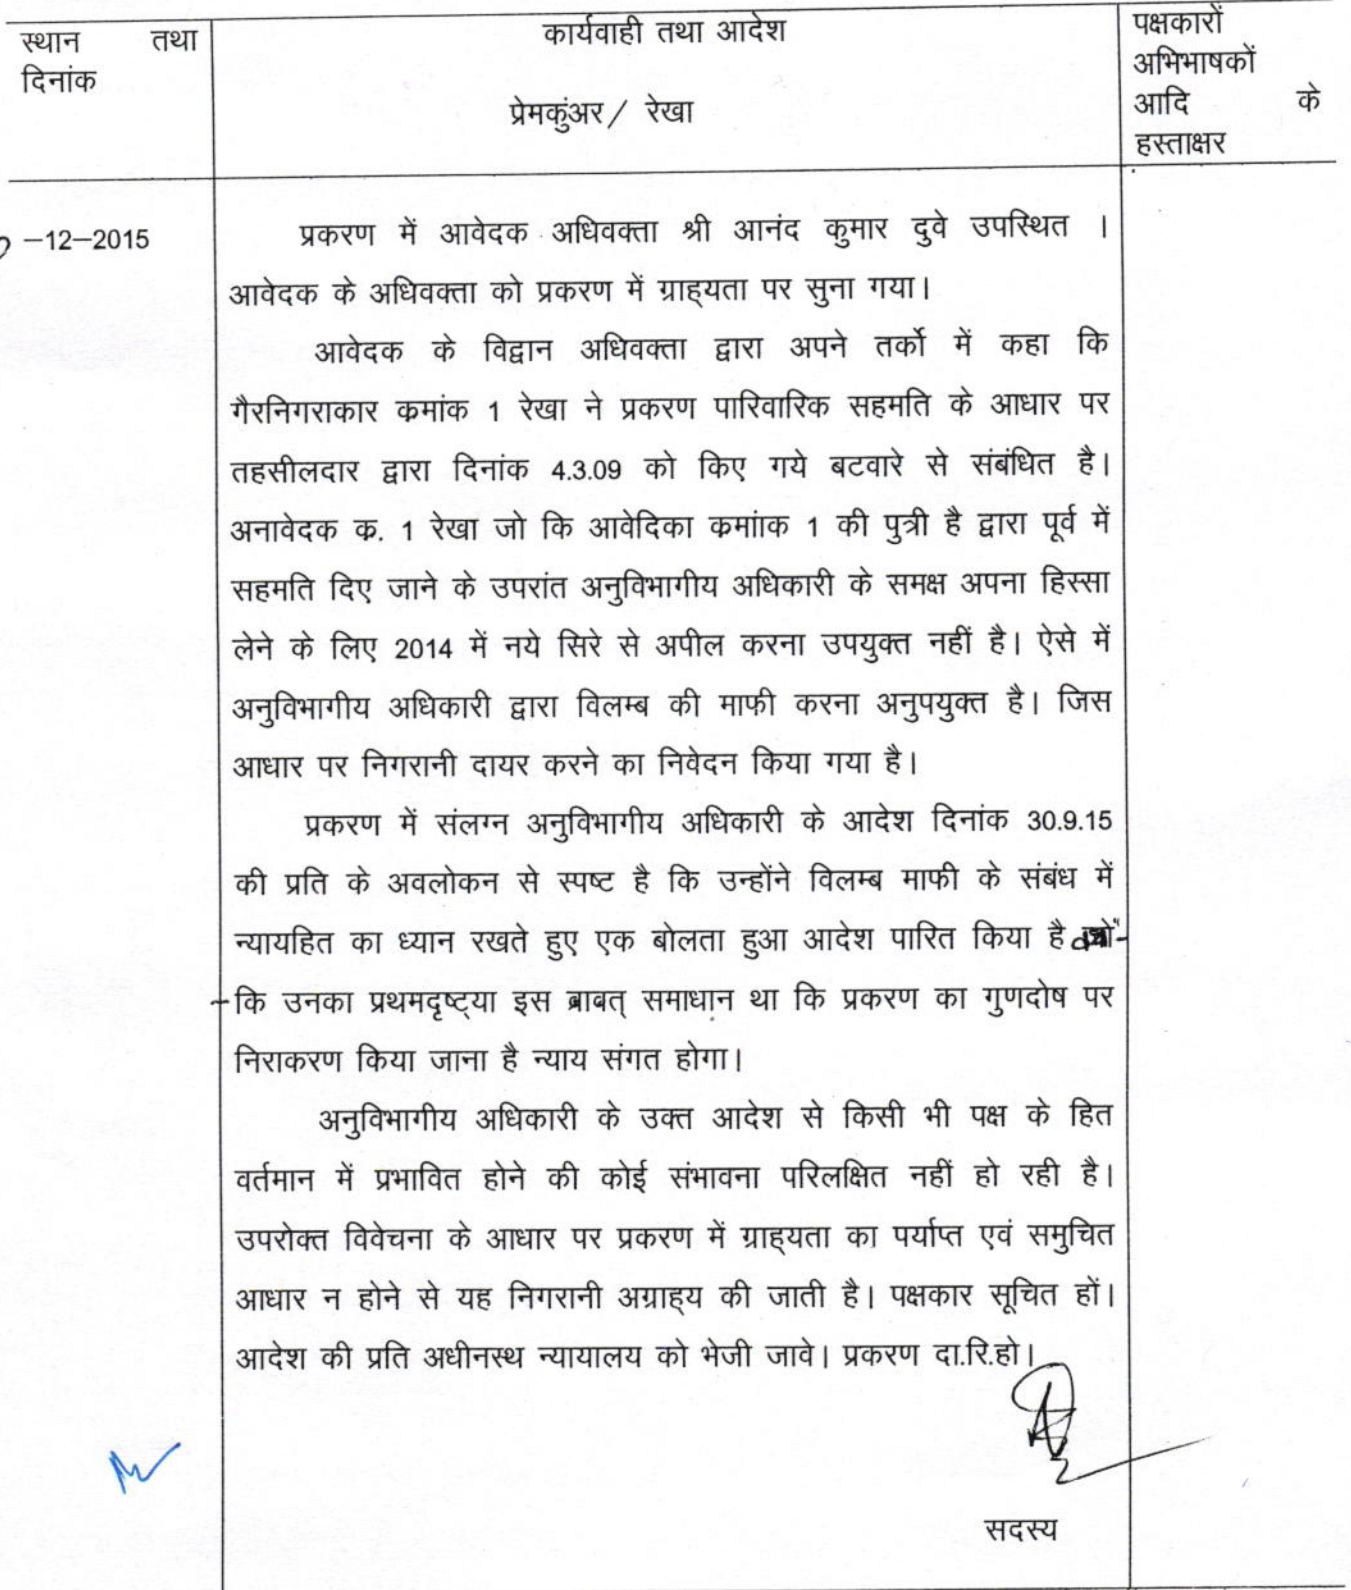 स्थान तथा
दिनांक
कार्यवाही तथा आदेश
प्रेमकुंअर / रेखा
पक्षकारों
अभिभाषकों
आदि के
हस्ताक्षर
–12–2015
प्रकरण में आवेदक अधिवक्ता श्री आनंद कुमार दुवे उपस्थित ।
आवेदक के अधिवक्ता को प्रकरण में ग्राह्यता पर सुना गया।
आवेदक के विद्वान अधिवक्ता द्वारा अपने तर्को में कहा कि
गैरनिगराकार कमांक 1 रेखा ने प्रकरण पारिवारिक सहमति के आधार पर
तहसीलदार द्वारा दिनांक 4.3.09 को किए गये बटवारे से संबंधित है।
अनावेदक क. 1 रेखा जो कि आवेदिका कमांाक 1 की पुत्री है द्वारा पूर्व में
सहमति दिए जाने के उपरांत अनुविभागीय अधिकारी के समक्ष अपना हिस्सा
लेने के लिए 2014 में नये सिरे से अपील करना उपयुक्त नहीं है। ऐसे में
अनुविभागीय अधिकारी द्वारा विलम्ब की माफी करना अनुपयुक्त है। जिस
आधार पर निगरानी दायर करने का निवेदन किया गया है।
प्रकरण में संलग्न अनुविभागीय अधिकारी के आदेश दिनांक 30.9.15
की प्रति के अवलोकन से स्पष्ट है कि उन्होंने विलम्ब माफी के संबंध में
न्यायहित का ध्यान रखते हुए एक बोलता हुआ आदेश पारित किया है
कि उनका प्रथमदृष्ट्या इस बाबत् समाधान था कि प्रकरण का गुणदोष पर
निराकरण किया जाना है न्याय संगत होगा।
अनुविभागीय अधिकारी के उक्त आदेश से किसी भी पक्ष के हित
वर्तमान में प्रभावित होने की कोई संभावना परिलक्षित नहीं हो रही है।
उपरोक्त विवेचना के आधार पर प्रकरण में ग्राह्यता का पर्याप्त एवं समुचित
आधार न होने से यह निगरानी अग्राह्य की जाती है। पक्षकार सूचित हों।
आदेश की प्रति अधीनस्थ न्यायालय को भेजी जावे। प्रकरण दा.रि.हो।
सदस्य